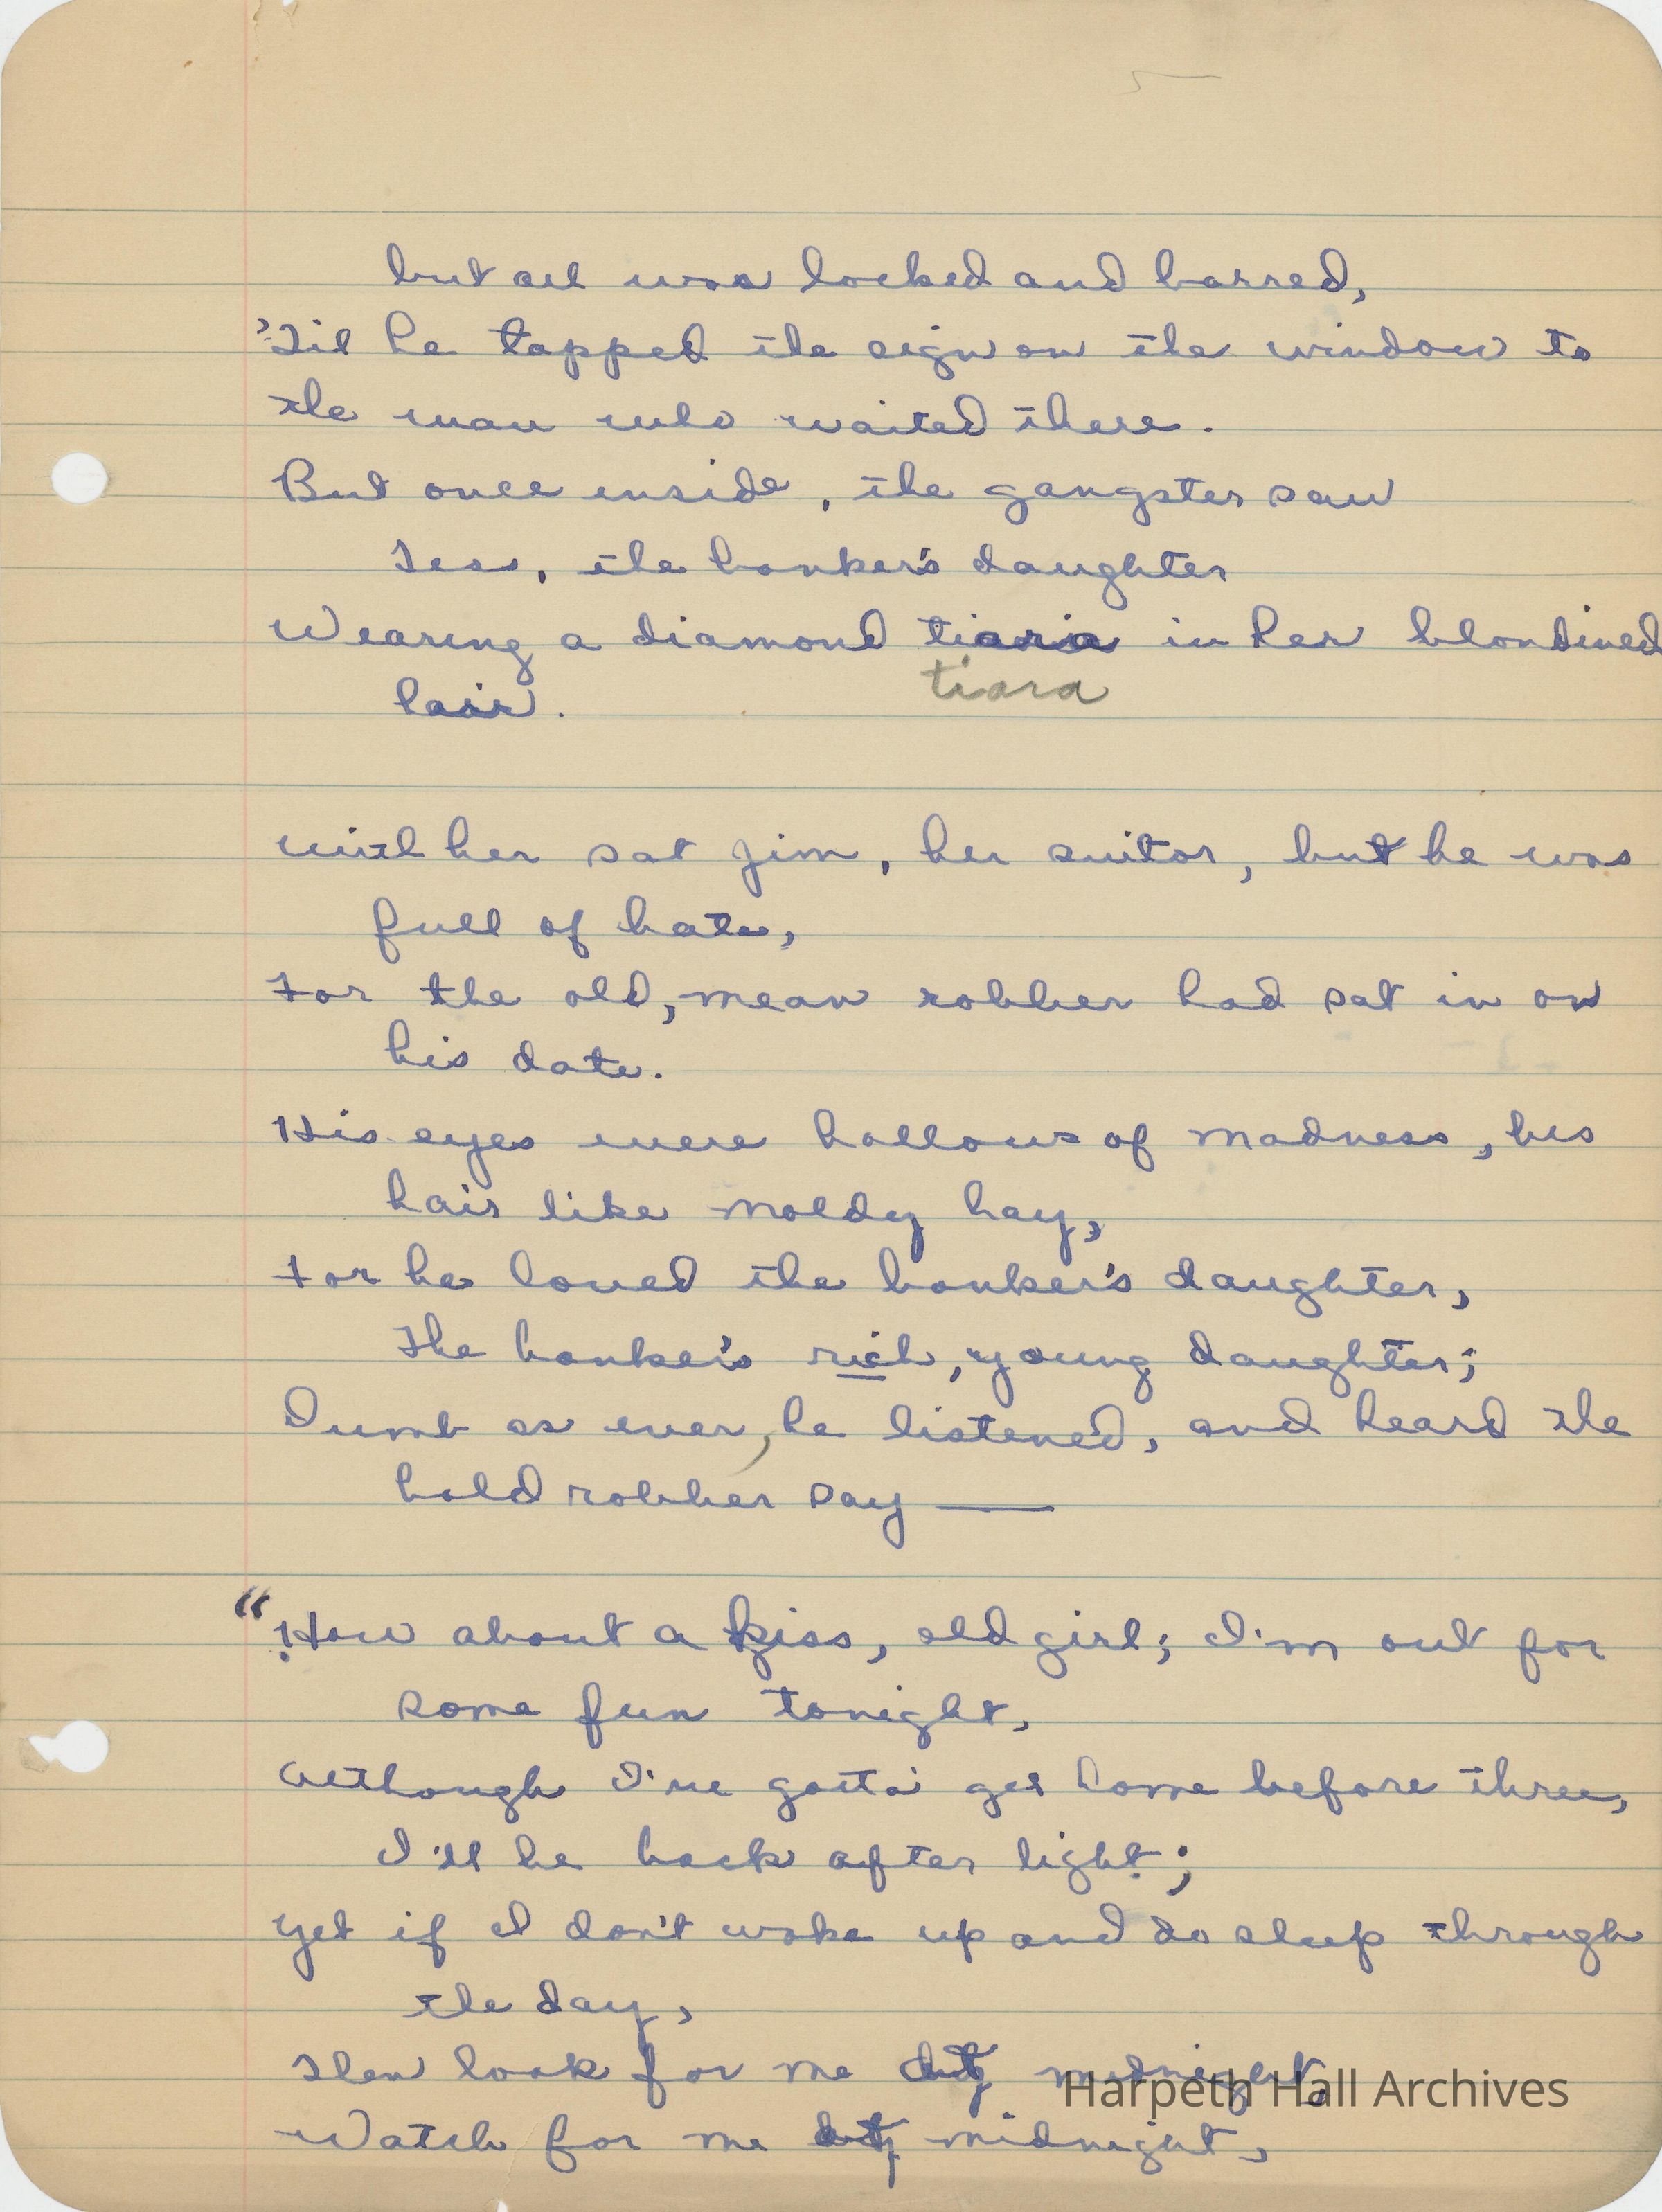 but all was locked and barred,
'Til he tapped the sign on the window to
the man who waited there.
But once inside, the gangster saw
Tess, the banker's daughter
Wearing a diamond tiaria in her blondined
tiara
hair.
With her sat Jim, her suitor, but he was
full of hate,
For the old, mean robber had sat in on
his date.
His eyes were hollows of madness, his
hair like moldy hay,
For he loved the banker's daughter,
The banker's rich, young daughter;
Dumb as ever, he listened, and heard the
bold robber say —
"How about a kiss, old girl; I'm out for
some fun tonight,
Although I've gotta' get home before three,
I'll be back after light;
Yet if I don't wake up and do sleep through
the day,
Then look for me midnight,
Watch for me midnight,
Harpeth Hall Archives